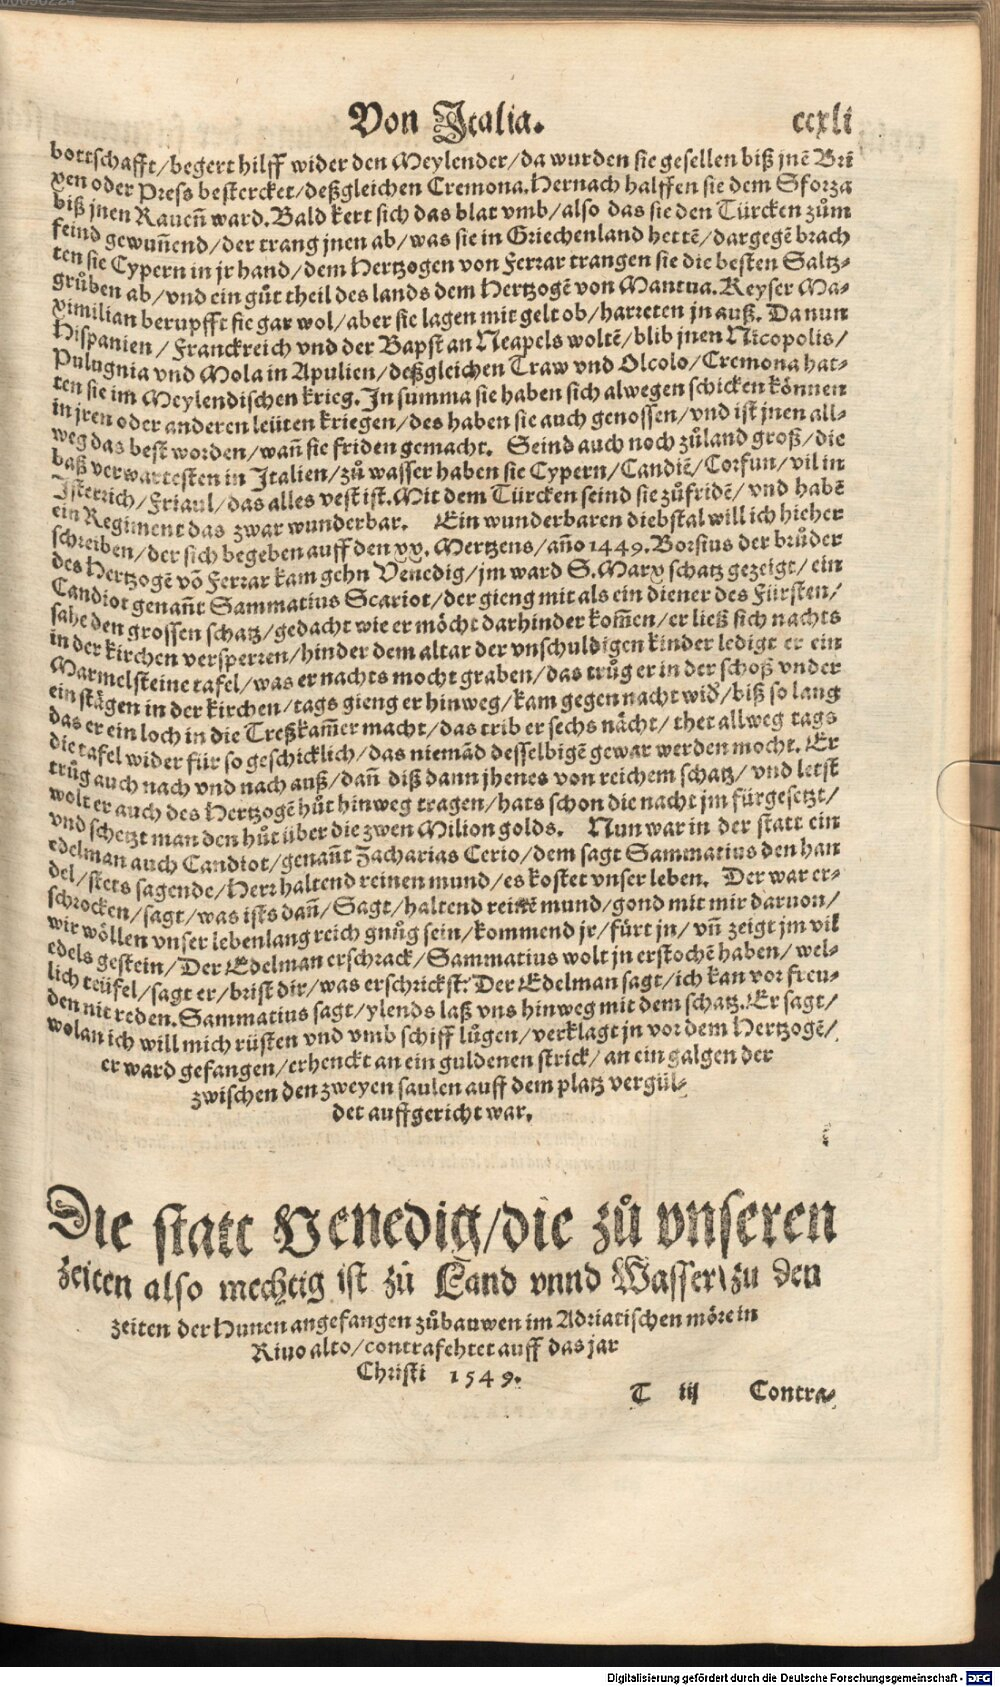 Von Italia. ccxli
bottschafft/begert hilff wider den Meylender/da wurden sie gesellen biß jnē Bri
xen oder Press bestercket/deßgleichen Cremona. Hernach halffen sie dem Sforza
biß jnen Raueñ ward. Bald kert sich das blat vmb/also das sie den Türcken zům
feind gewuñend/der trang jnen ab/was sie in Griechenland hettē/dargegē brach
ten sie Cypern in jr hand/dem Hertzogen von Ferrar trangen sie die besten Saltz-
grůben ab/vnd ein gůt theil des lands dem Hertzogē von Mantua. Keyser Ma-
ximilian berupfft sie gar wol/aber sie lagen mit gelt ob/harreten jn auß. Da nun
Hispanien/Franckreich vnd der Bapst an Neapels woltē/blib jnen Nicopolis/
Pulugnia vnd Mola in Apulien/deßgleichen Traw vnd Olcolo/Cremona hat-
ten sie im Meylendischen krieg. In summa sie haben sich alwegen schicken können
in jren oder anderen leüten kriegen/des haben sie auch genossen/vnd ist jnen all-
weg das best worden/wañ sie friden gemacht. Seind auch noch zůland groß/die
baß verwartesten in Italien/zů wasser haben sie Cypern/Candiē/Corfun/vil in
Isterrich/Friaul/das alles vest ist. Mit dem Türcken seind sie zůfridē/vnd habē
ein Regiment das zwar wunderbar. Ein wunderbaren diebstal will ich hieher
schreiben/der sich begeben auff den xx. Mertzens/año 1449. Borsius der brůder
des Hertzogē võ Ferrar kam gehn Venedig/jm ward S. Marx schatz gezeigt/ein
Candiot genañt Sammatius Scariot/der gieng mit als ein diener des Fürsten/
sahe den grossen schatz/gedacht wie er möcht darhinder kom̃en/er ließ sich nachts
in der kirchen versperren/hinder dem altar der vnschuldigen kinder ledigt er ein
Marmelsteine tafel/was er nachts mocht graben/das trůg er in der schoß vnder
ein stägen in der kirchen/tags gieng er hinweg/kam gegen nacht wid̄/biß so lang
das er ein loch in die Treßkam̃er macht/das trib er sechs nächt/thet allweg tags
die tafel wider für so geschicklich/das niemãd desselbigē gewar werden mocht. Er
trůg auch nach vnd nach auß/dañ diß dann jhenes von reichem schatz/vnd letst
wolt er auch des Hertzogē hůt hinweg tragen/hats schon die nacht jm fürgesetzt/
vnd schetzt man den hůt über die zwen Milion golds. Nun war in der statt ein
edelman auch Candiot/genañt Zacharias Cerio/dem sagt Sammatius den han
del/stets sagende/Herr haltend reinen mund/es kostet vnser leben. Der war er-
schrocken/sagt/was ists dañ/Sagt/haltend reinē mund/gond mit mir daruon/
wir wöllen vnser lebenlang reich gnůg sein/kommend jr/fürt jn/vñ zeigt jm vil
edels gestein/Der Edelman erschrack/Sammatius wolt jn erstochē haben/wel-
lich teüfel/sagt er/brist dir/was erschrickst: Der Edelman sagt/ich kan vor freu-
den nit reden. Sammatius sagt/ylends laß vns hinweg mit dem schatz. Er sagt/
wolan ich will mich rüsten vnd vmb schiff lůgen/verklagt jn vor dem Hertzogē/
er ward gefangen/erhenckt an ein guldenen strick/an ein galgen der
zwischen den zweyen saulen auff dem platz vergül-
det auffgericht war.
Die statt Venedig/die zů vnseren
zeiten also mechtig ist zů Land vnnd Wasser/zu den
zeiten der Hunen angefangen zůbauwen im Adriatischen möre in
Riuo alto/contrafehtet auff das jar
Christi 1549.
T iij Contra-
Digitalisierung gefördert durch die Deutsche Forschungsgemeinschaft - DFG